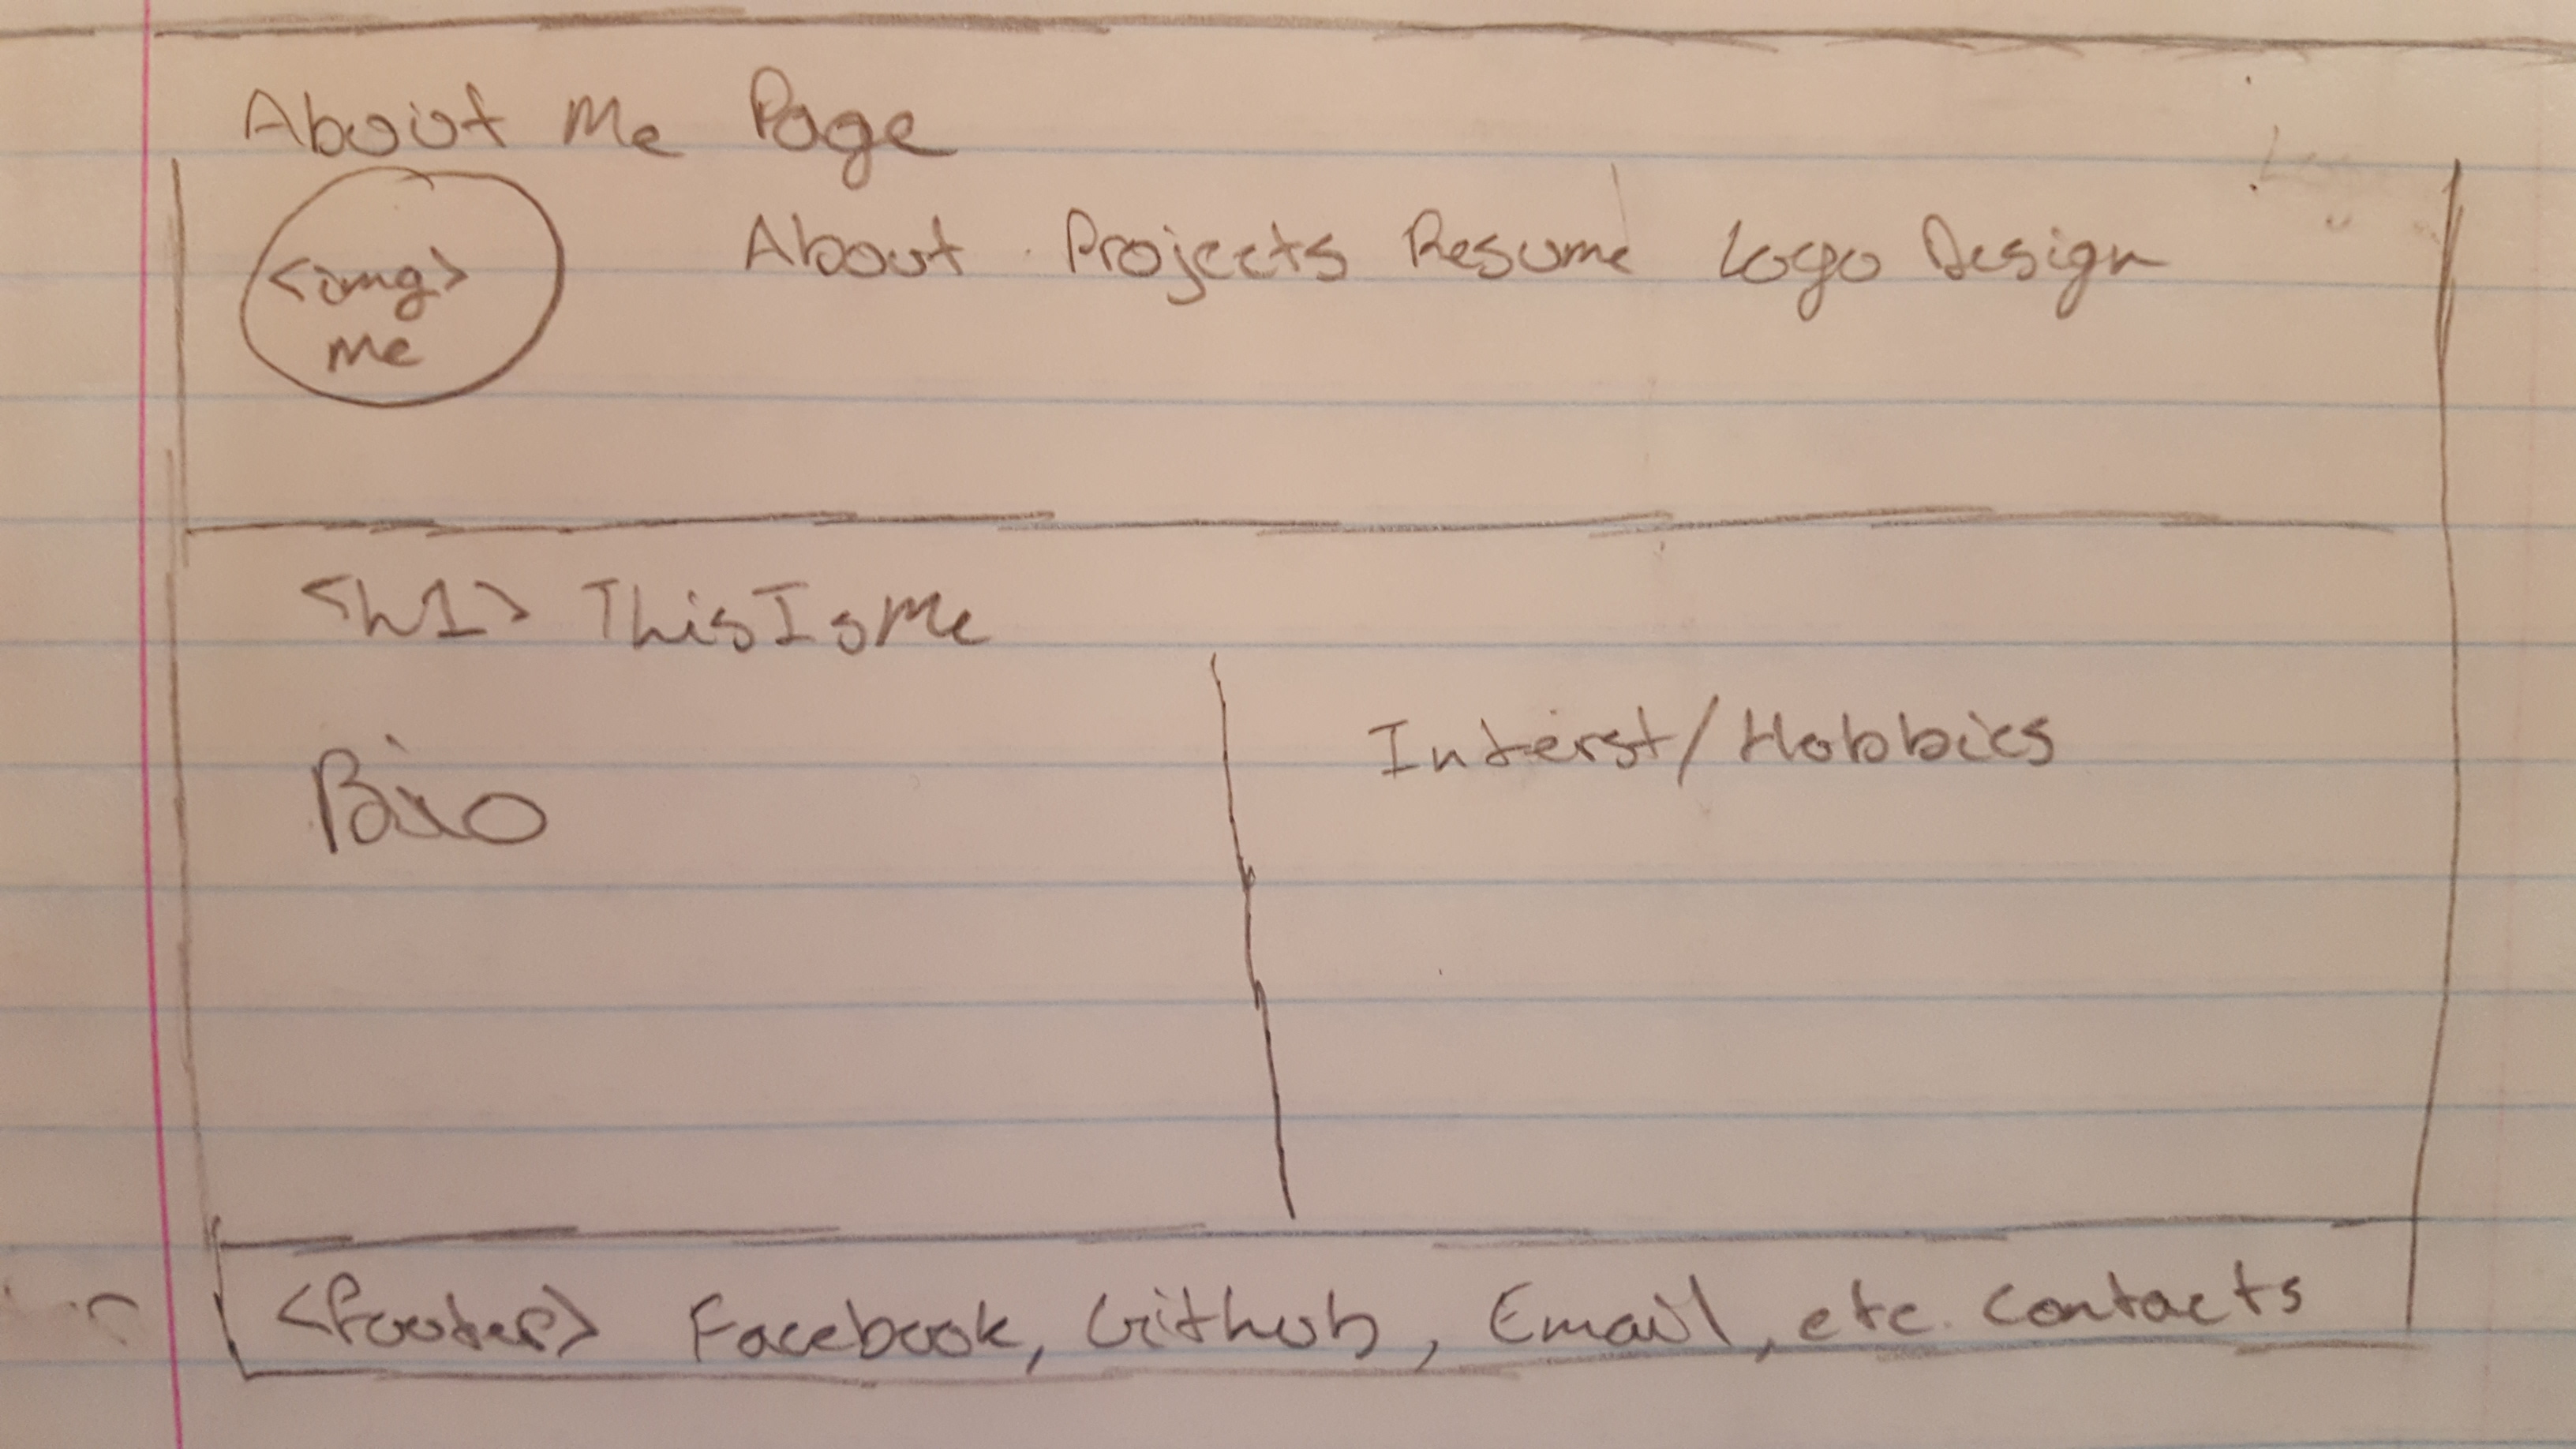 About Me Page
<img>
Me
About Projects Resume Logo Design
<h1> ThisIsMe
Bio
Interst/Hobbies
<footer> Facebook, Github, Email, etc. Contacts